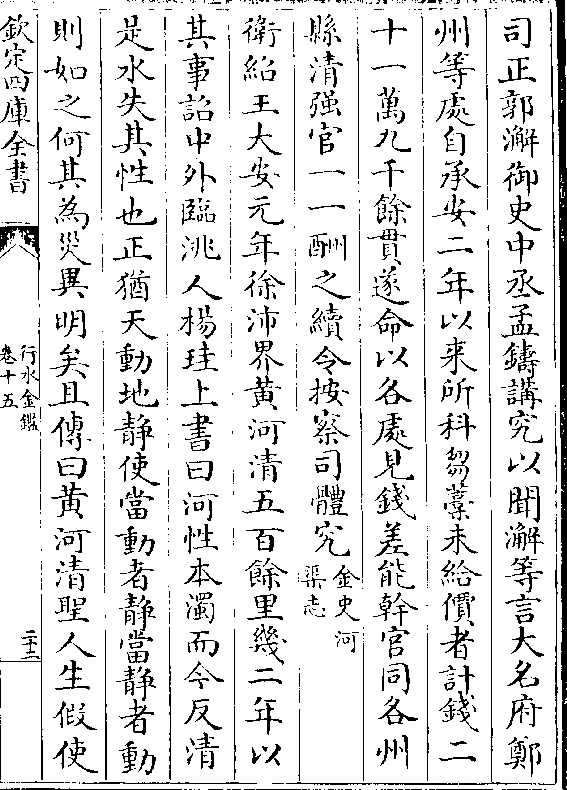 司正郭澥御史中丞孟鑄講究以聞澥等言大名府鄭
州等處自承安二年以來所科芻藁未給價者計錢二
十一萬九千餘貫遂命以各處見錢差能幹官同各州
縣清强官一一酬之續令按察司體究金史河
渠志
衛紹王大安元年徐沛界黄河清五百餘里幾二年以
其事詔中外臨洮人楊珪上書曰河性本濁而今反清
是水失其性也正猶天動地静使當動者静當静者動
則如之何其為災異明矣且傳曰黄河清聖人生假使
欽定四庫全書
行水金鑑
卷十五
二十二